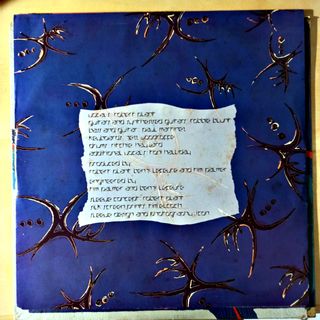 vocals: robert plant
guitar and synthesized guitar: robbie blunt
bass and guitar: paul martinez
keyboards: jezz woodroffe
drums: ritchie hayward
additional vocals: toni halliday
produced by:
robert plant benji lefevre and tim palmer
engineered by
tim palmer and benji lefevre
sleeve concept: robert plant
silk screen prints:
sleeve design and photography: icon